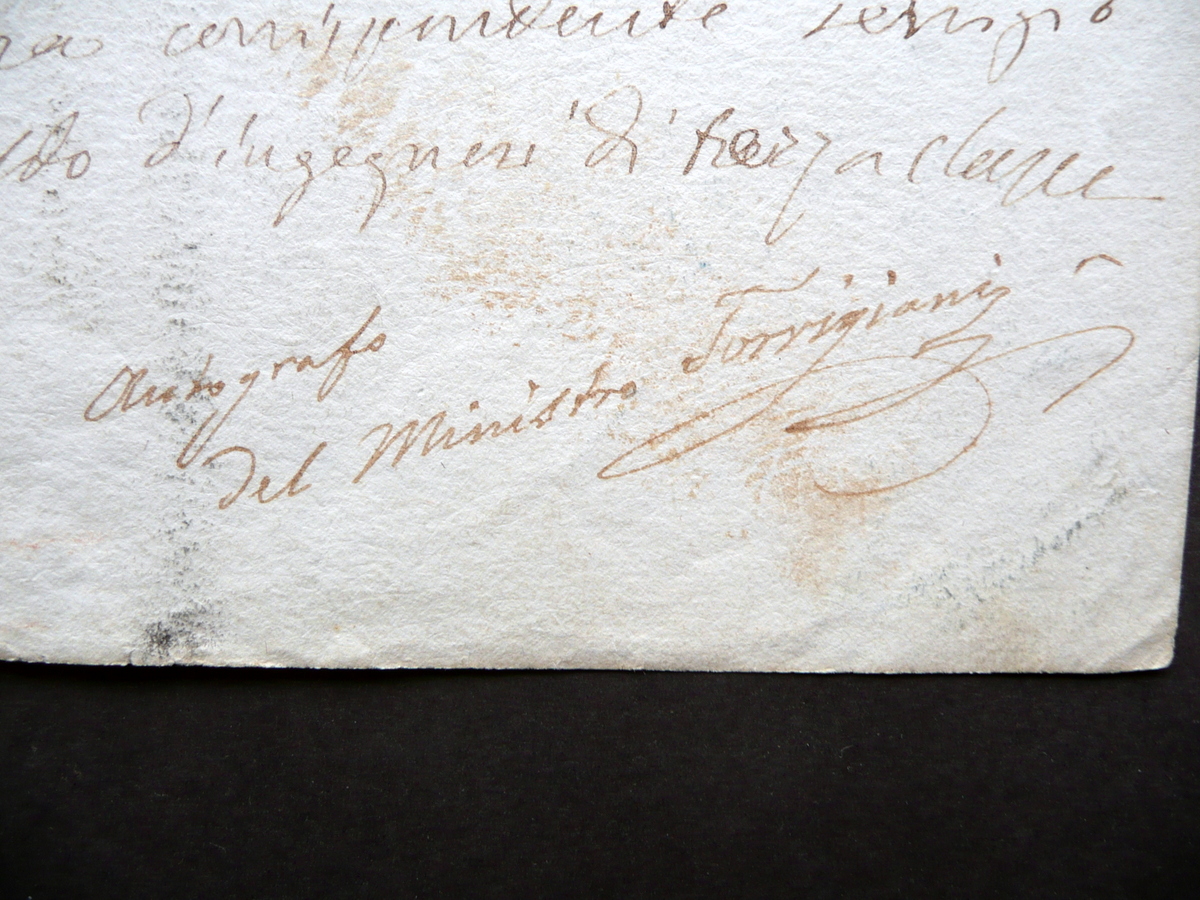 corrispondente servizio
d'ingegnere di terza classe
Autografo
del Ministro Torrigiani